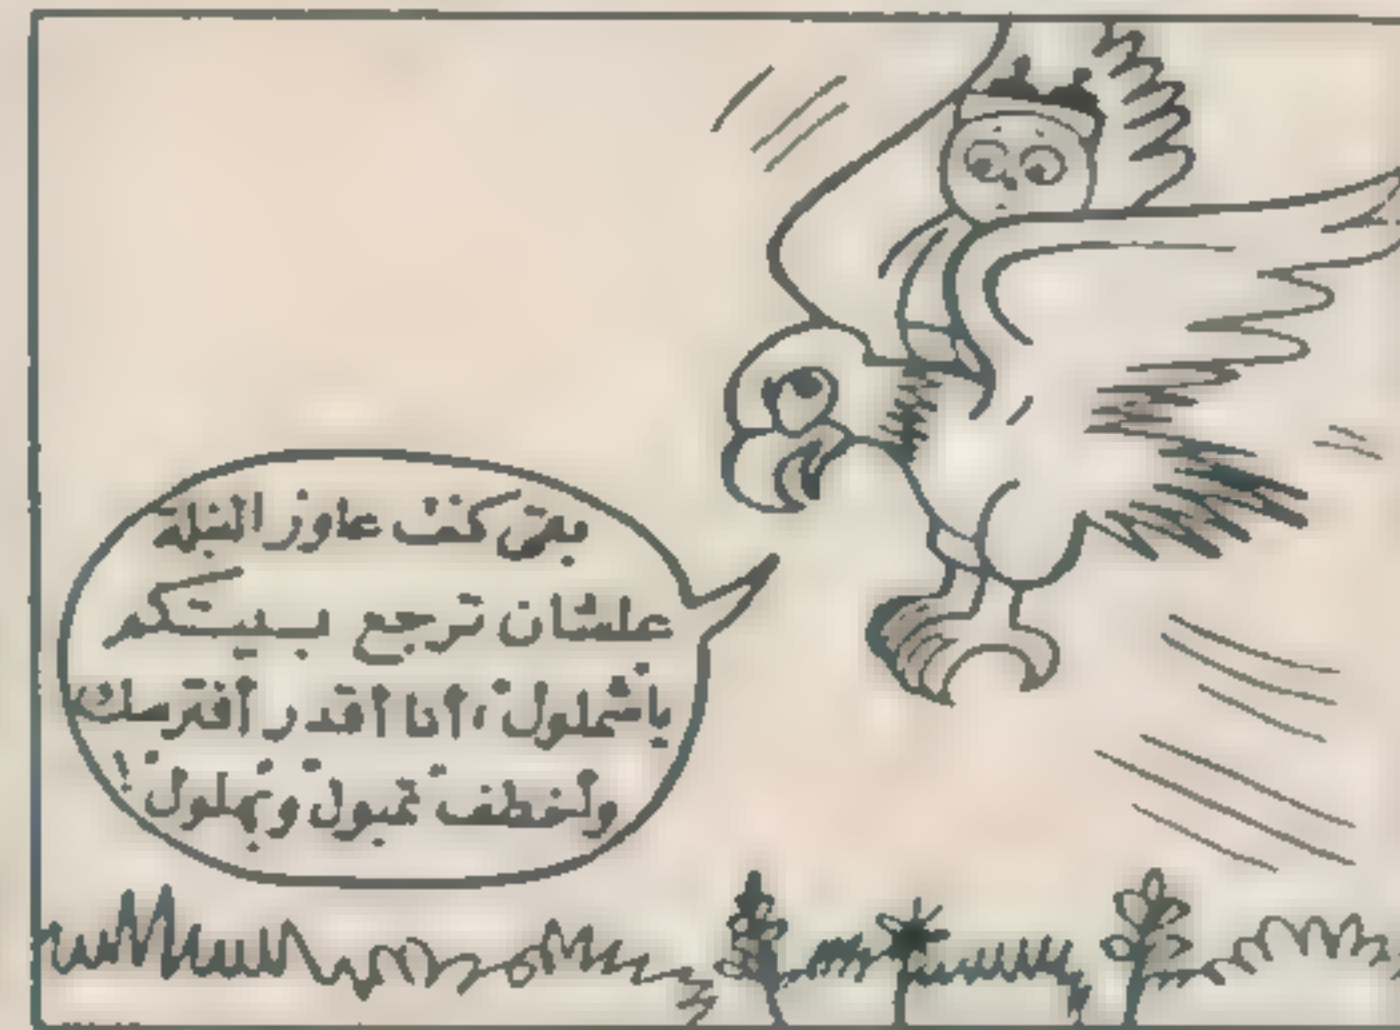 بقى كنت عاوز النبلة
علشان ترجع بيتكم
يا شملول، أنا أقدر أفترسك
ولخطف تمبول وبهلول!